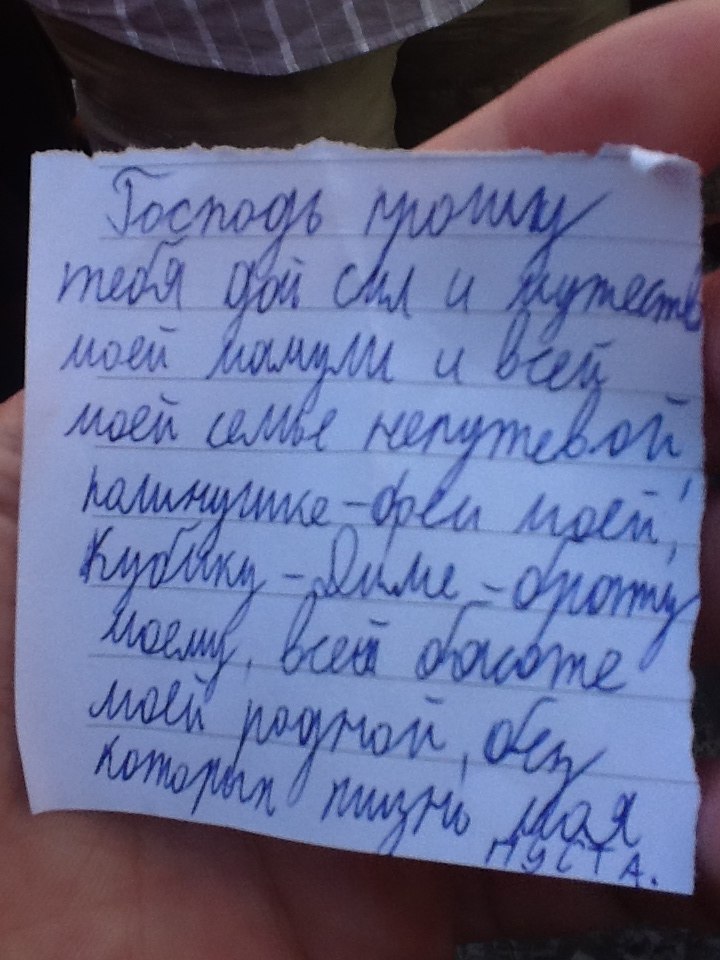 Господь прошу
тебя дай сил и мужеств
моей мамули и всей
моей семье непутевой,
калинушке-феи моей,
Кубику-Диме-брату
моему, всей басоте
моей родной, без
которых жизнь моя
ПУСТА.